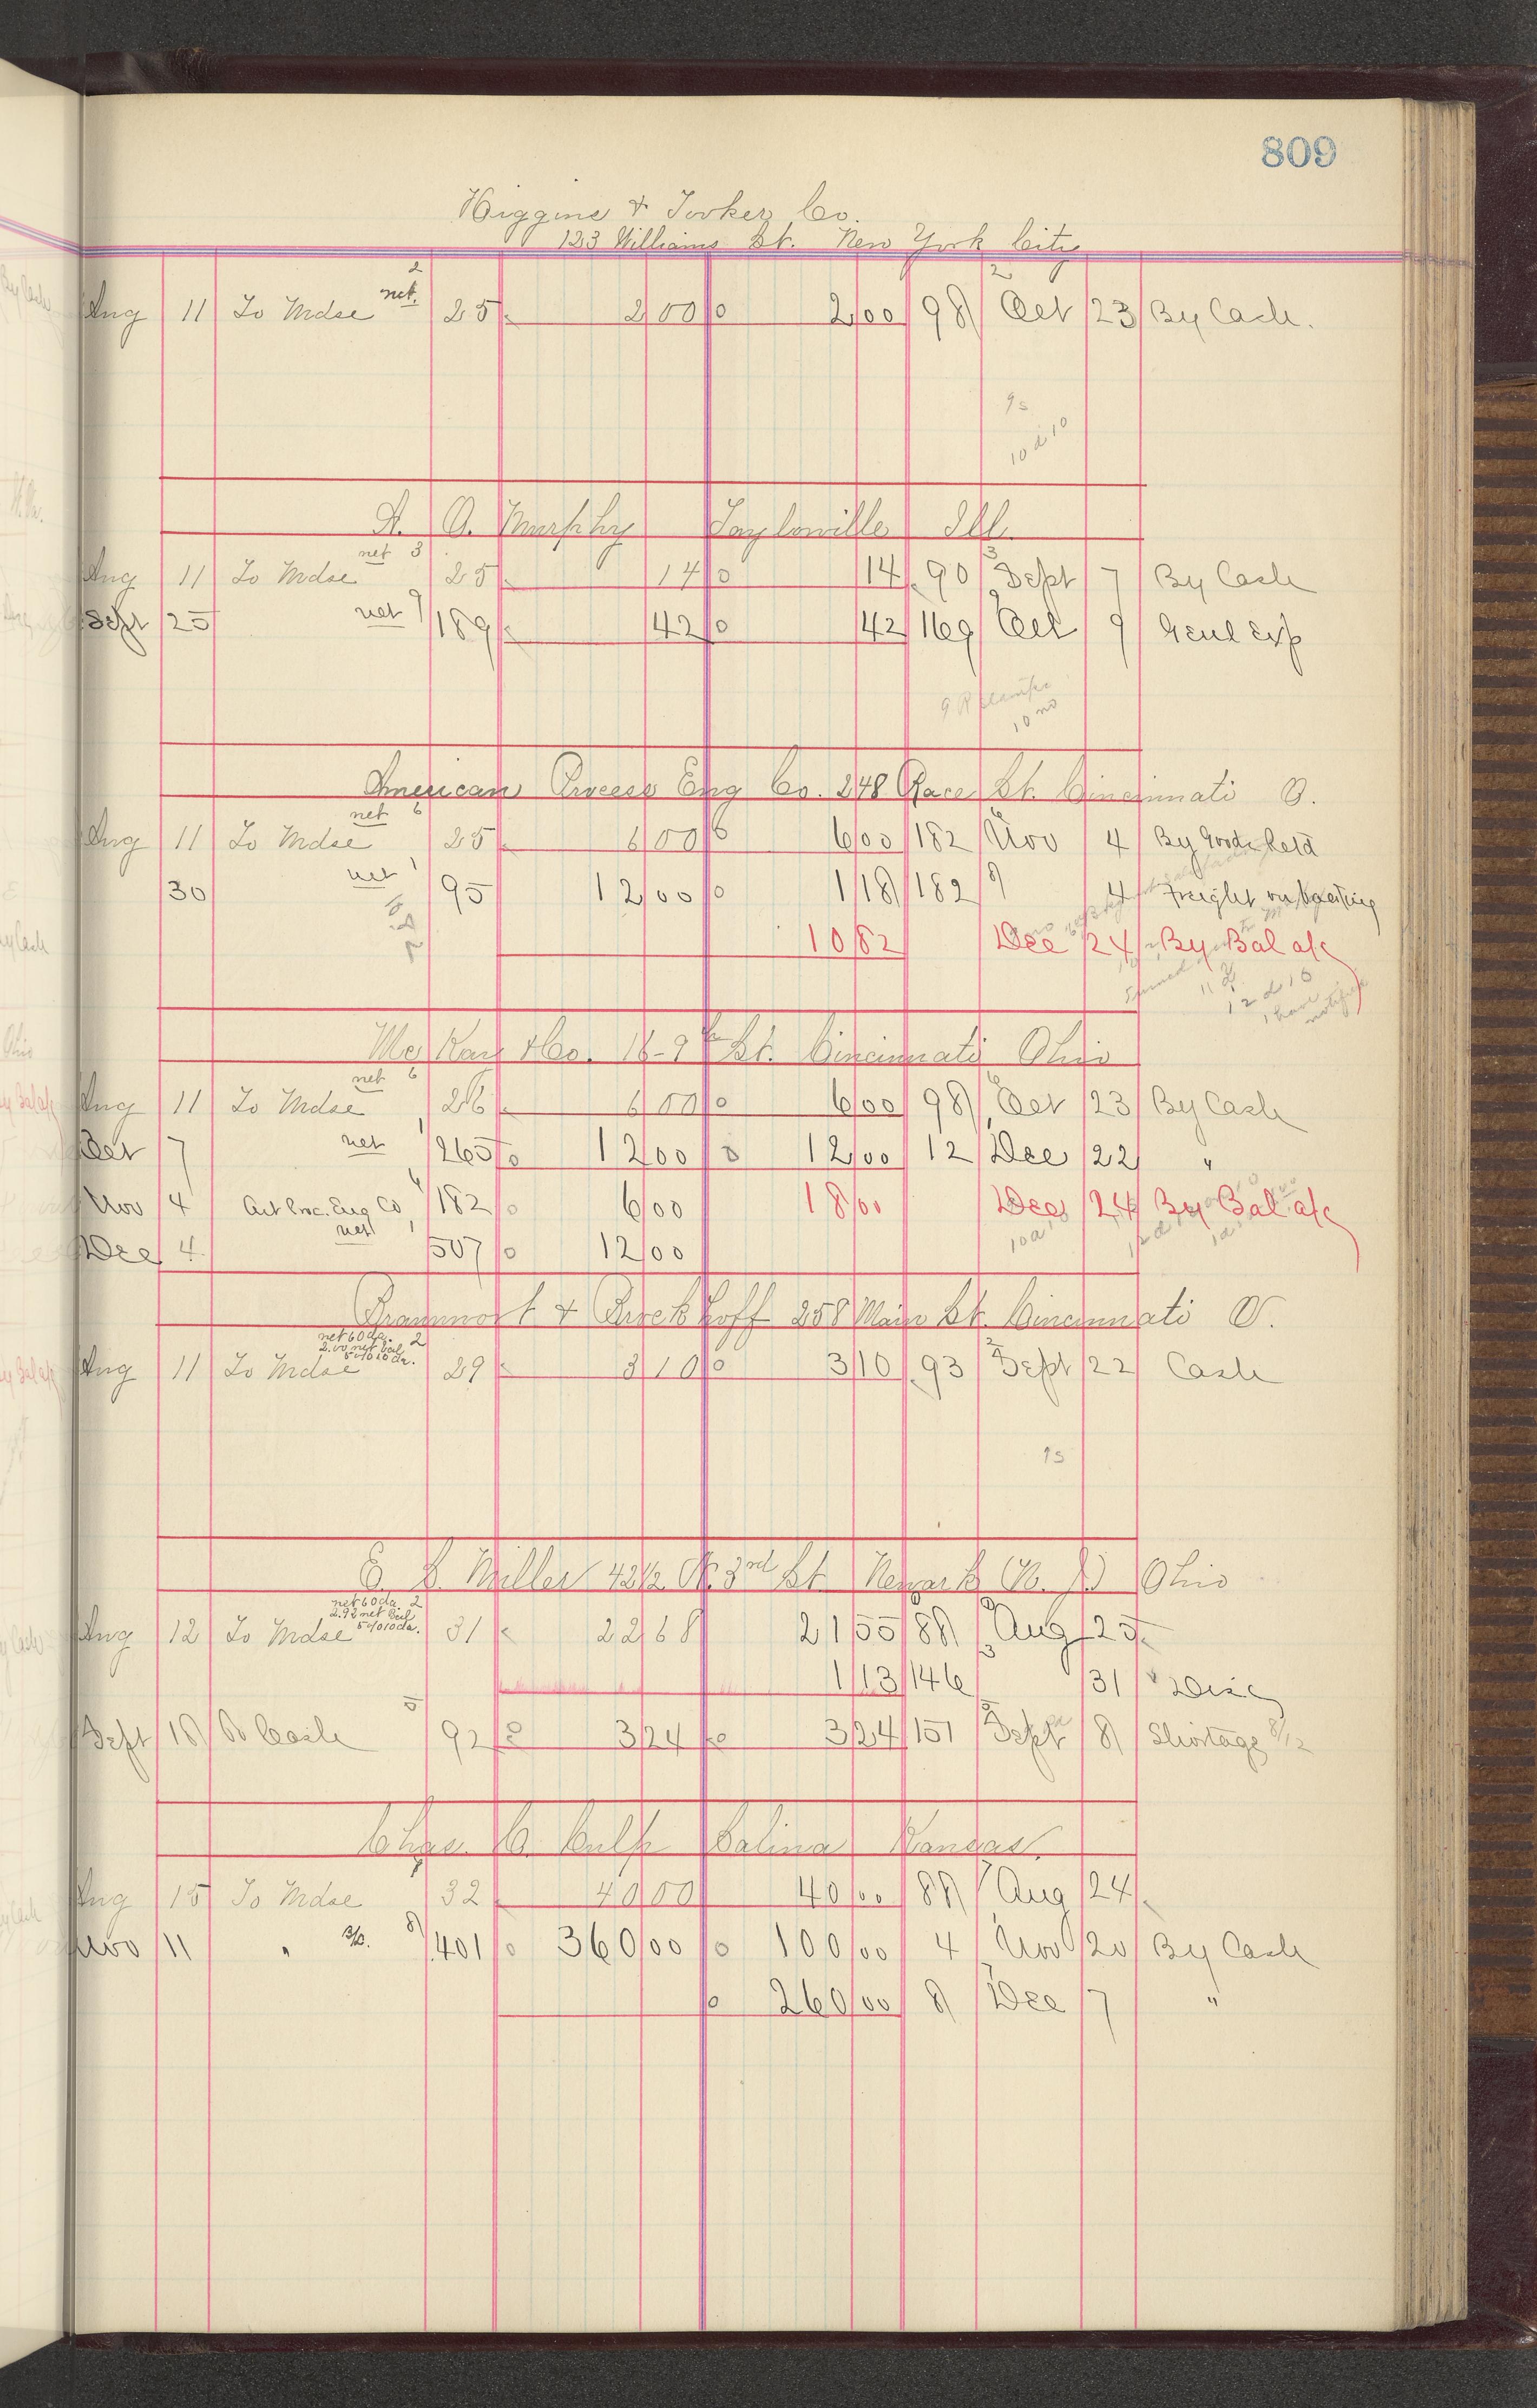 809
Higgins & Tooker Co.
123 Williams St. New York City
Aug 11 To Mdse net. 2 25 2 00 2 00 98 2 Oct 23 By Cash.
9s
10 d 10
A. O. Murphy Taylorville Ill.
Aug 11 To Mdse net 3 25 14 14 90 3 Sept 7 By Cash
Sept 25 net 9 189 42 42 169 Oct 9 Genl Exp
10 no
American Process Eng Co. 248 Race St. Cincinnati O.
Aug 11 To Mdse net 6 25 6 00 6 00 182 Nov 4 By Goods Retd
30 net 1 95 12 00 1 18 182 8 4 Freight on
10 82 Dec 24 By Bal a/c
12 d 16
Mc Kay & Co. 16-9th St. Cincinnati Ohio
Aug 11 To Mdse net 6 26 6 00 6 00 98 6 Oct 23 By Cash
Oct 7 net 1 265 12 00 12 00 12 Dec 22 "
Nov 4 Art Proc. Eng Co 182 6 00 18 00 Dec 24 By Bal a/c
Dec 4 net 1 507 12 00
258 Main St. Cincinnati O.
net 60 da. 2
2.00 net bal
5% 10 da.
Aug 11 To Mdse 29 3 10 3 10 93 2 Sept 22 Cash
9s
E. S. Miller 42½ N. 3rd St. Newark (N. J.) Ohio
net 60 da. 2
2.92 net Bal
5% 10 da.
Aug 12 To Mdse 31 22 68 21 55 88 Aug 25
1 13 146 31 " Disc
Sept 18 To Cash 5 92 3 24 3 24 151 5 Sept 8 Shortage 8/12
Chas. B. Culp Salina Kansas.
Aug 15 To Mdse 32 40 00 40 00 88 7 Aug 24
Nov 11 " 8 401 360 00 100 00 4 Nov 20 By Cash
260 00 8 Dec 7 "